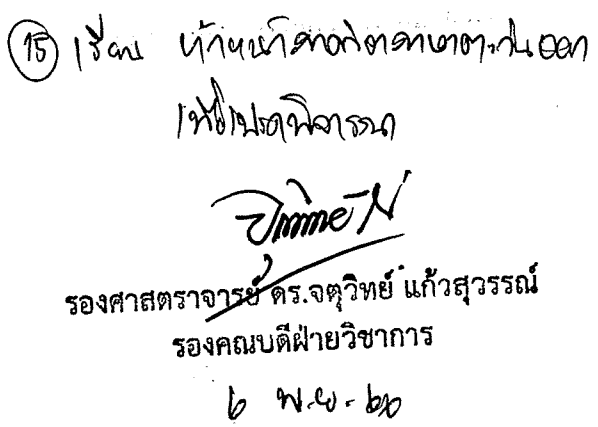 15 เรียน หัวหน้าสาขาวิชาภาษาตะวันออก
เพื่อโปรดพิจารณา
รองศาสตราจารย์ ดร.จตุวิทย์ แก้วสุวรรณ์
รองคณบดีฝ่ายวิชาการ
๖ พ.ย. ๖๐